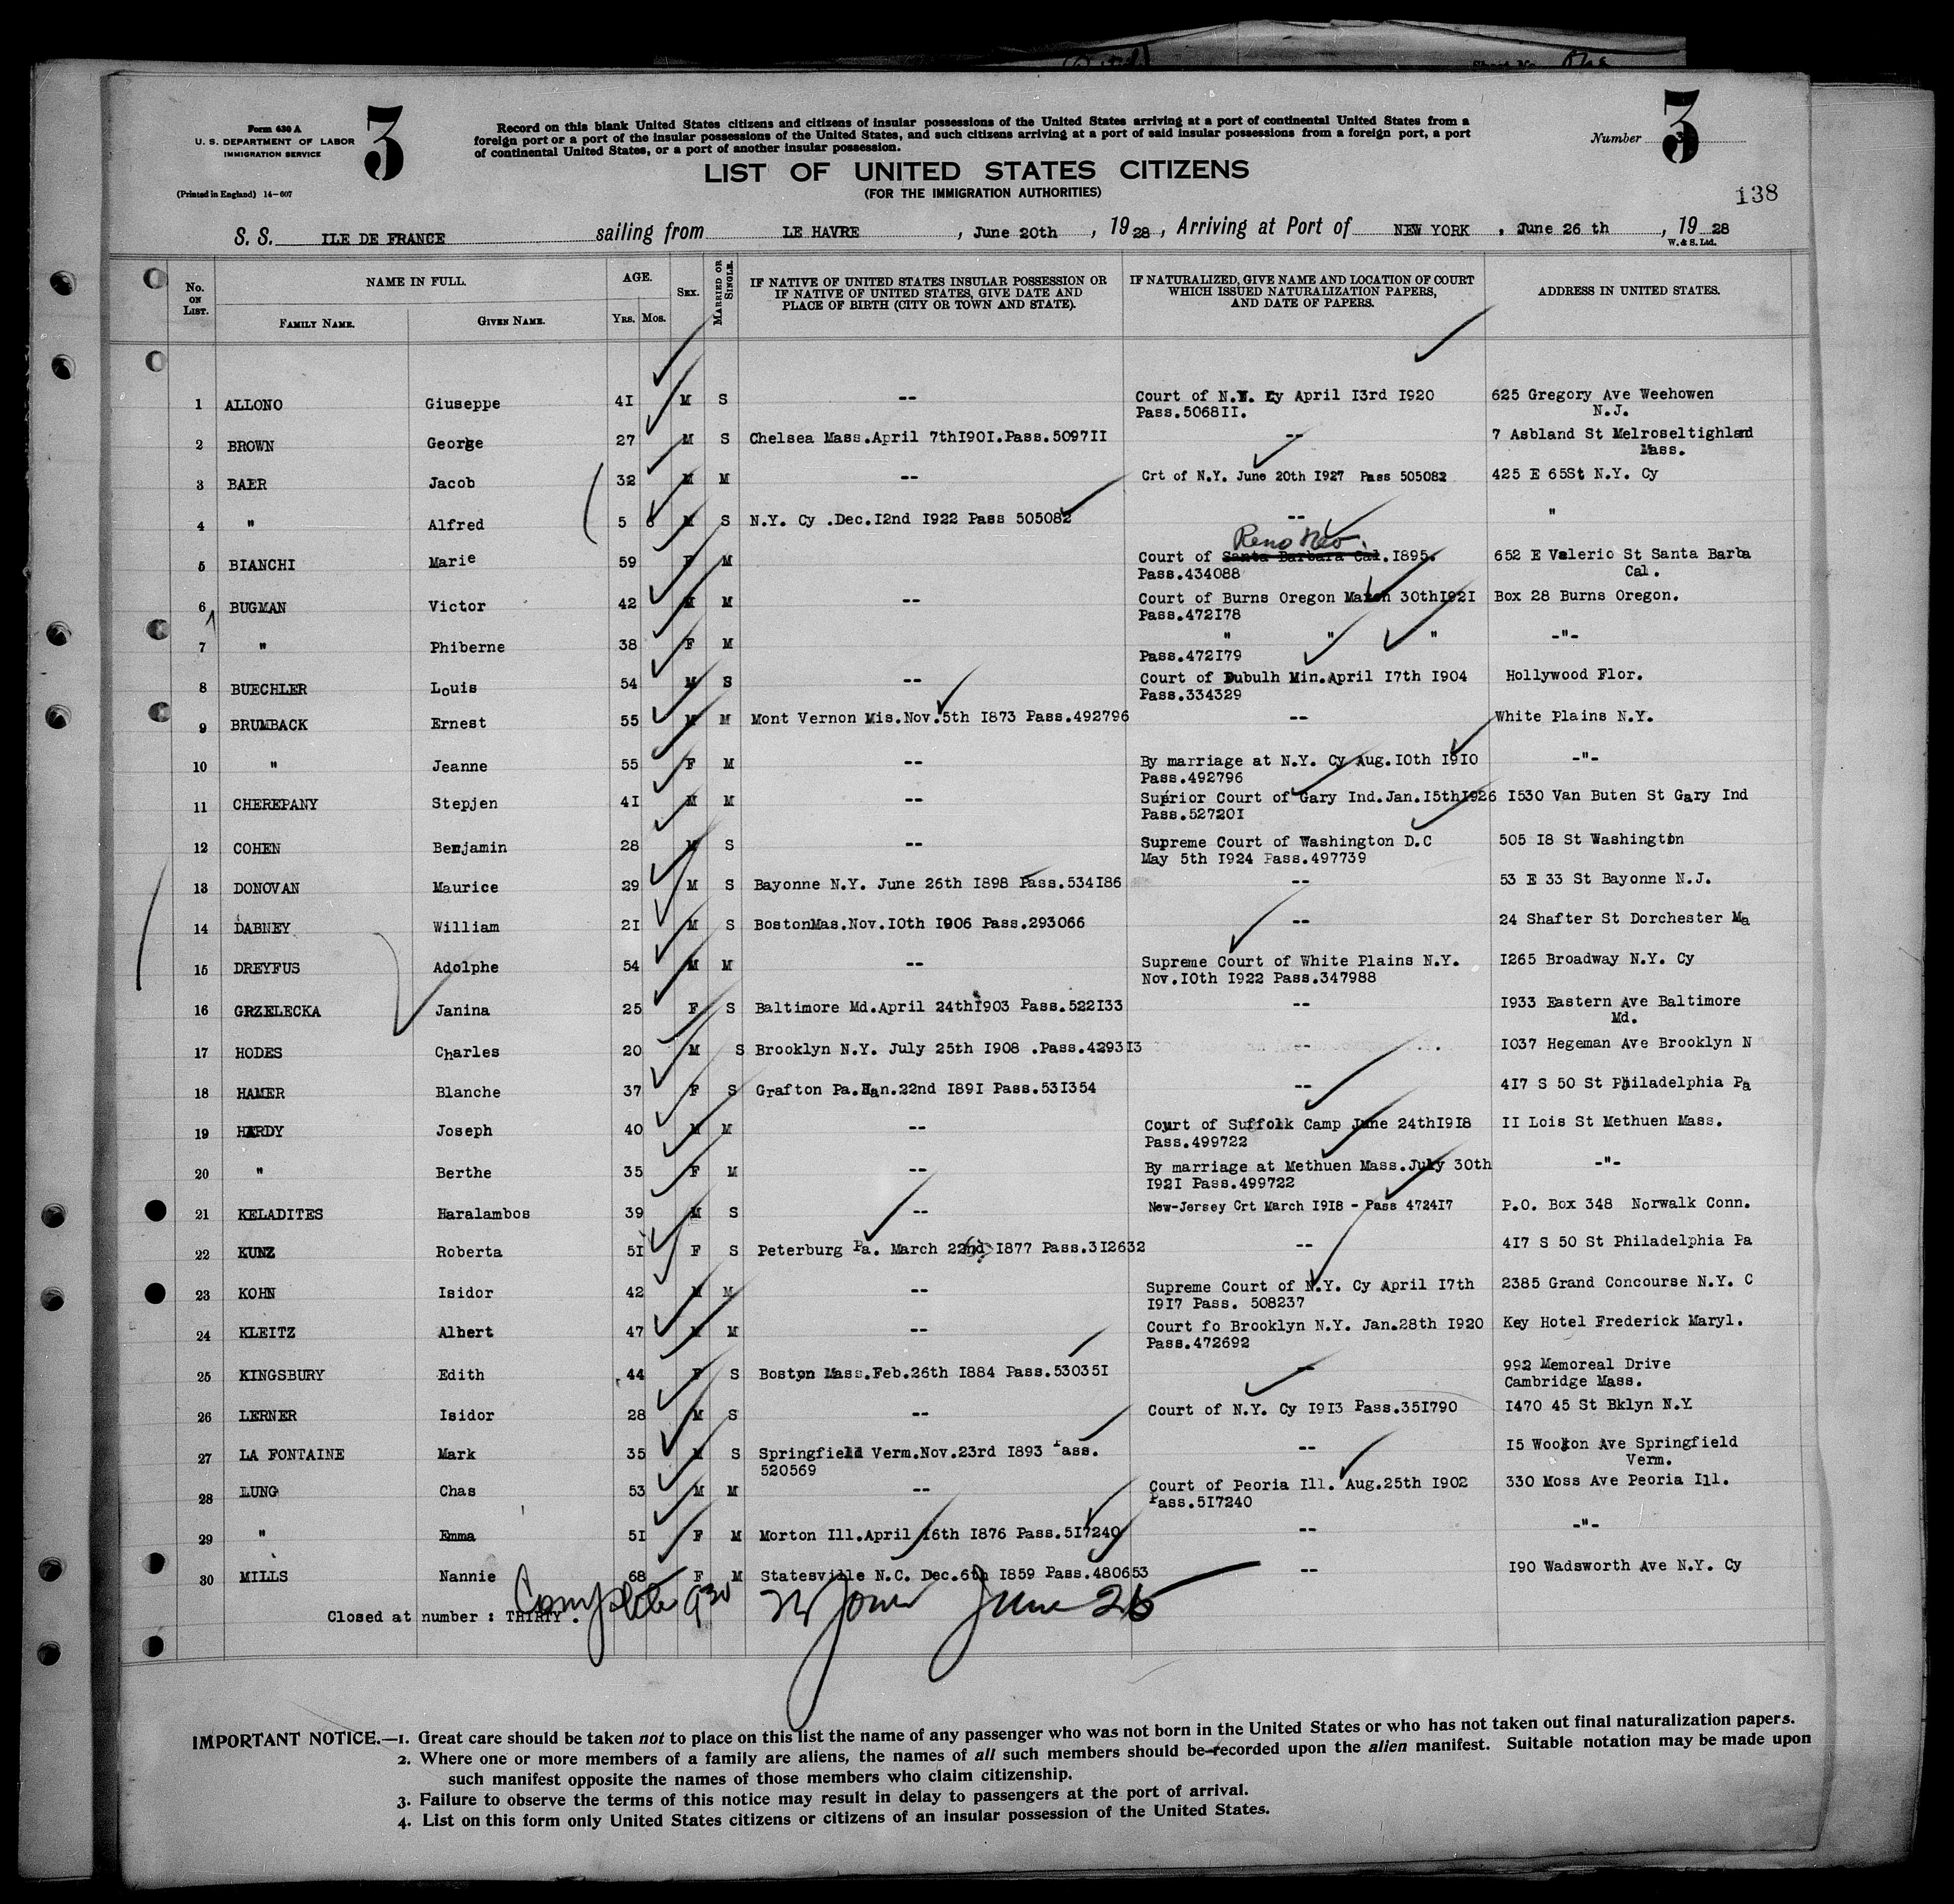 Form 630 A
U. S. DEPARTMENT OF LABOR
IMMIGRATION SERVICE
(Printed in England) 14-607
3
Record on this blank United States citizens and citizens of insular possessions of the United States arriving at a port of continental United States from a
foreign port or a port of the insular possessions of the United States, and such citizens arriving at a port of said insular possessions from a foreign port, a port
of continental United States, or a port of another insular possession.
LIST OF UNITED STATES CITIZENS
(FOR THE IMMIGRATION AUTHORITIES)
Number 3
138
S. S. ILE DE FRANCE sailing from LE HAVRE, June 20th, 1928, Arriving at Port of NEW YORK, June 26 th, 1928
W. & S. Ltd.
No. ON LIST. NAME IN FULL. AGE. SEX. MARRIED OR SINGLE. IF NATIVE OF UNITED STATES INSULAR POSSESSION OR IF NATIVE OF UNITED STATES, GIVE DATE AND PLACE OF BIRTH (CITY OR TOWN AND STATE). IF NATURALIZED, GIVE NAME AND LOCATION OF COURT WHICH ISSUED NATURALIZATION PAPERS, AND DATE OF PAPERS. ADDRESS IN UNITED STATES.
FAMILY NAME. GIVEN NAME. YRS. MOS.
1 ALLONO Giuseppe 4I M S -- Court of N.Y. Cy April I3rd I920 625 Gregory Ave Weehowen
Pass.5068II. N.J.
2 BROWN George 27 M S Chelsea Mass.April 7thI90I.Pass.5097II -- 7 Asbland St Melroseltighland
Mass.
3 BAER Jacob 32 M M -- Crt of N.Y. June 20th I927 Pass 505082 425 E 65St N.Y. Cy
4 " Alfred 5 6 M S N.Y. Cy .Dec.I2nd I922 Pass 505082 -- "
Reno Nev.
5 BIANCHI Marie 59 F M Court of Santa Barbara Cal.I895. 652 E Valerio St Santa Barba
Pass.434088 Cal.
6 BUGMAN Victor 42 M M -- Court of Burns Oregon March 30thI92I Box 28 Burns Oregon.
Pass.472I78
7 " Phiberne 38 F M " " " -"-
Pass.472I79
8 BUECHLER Louis 54 M S -- Court of Dubulh Min.April I7th I904 Hollywood Flor.
Pass.334329
9 BRUMBACK Ernest 55 M M Mont Vernon Mis.Nov.5th I873 Pass.492796 -- White Plains N.Y.
10 " Jeanne 55 F M -- By marriage at N.Y. Cy Aug.I0th I9I0 -"-
Pass.492796
11 CHEREPANY Stepjen 4I M M -- Suprior Court of Gary Ind.Jan.I5thI926 I530 Van Buten St Gary Ind
Pass.52720I
12 COHEN Benjamin 28 M S -- Supreme Court of Washington D.C 505 I8 St Washingtin
May 5th I924 Pass.497739
13 DONOVAN Maurice 29 M S Bayonne N.Y. June 26th I898 Pass.534I86 -- 53 E 33 St Bayonne N.J.
14 DABNEY William 2I M S BostonMas.Nov.I0th I906 Pass.293066 -- 24 Shafter St Dorchester Ma
15 DREYFUS Adolphe 54 M M -- Supreme Court of White Plains N.Y. I265 Broadway N.Y. Cy
Nov.I0th I922 Pass.347988
16 GRZELECKA Janina 25 F S Baltimore Md.April 24thI903 Pass.522I33 -- I933 Eastern Ave Baltimore
Md.
17 HODES Charles 20 M S Brooklyn N.Y. July 25th I908 .Pass.4293I3 -- I037 Hegeman Ave Brooklyn N
18 HAMER Blanche 37 F S Grafton Pa.Han.22nd I89I Pass.53I354 -- 4I7 S 50 St Philadelphia Pa
19 HARDY Joseph 40 M M -- Court of Suffolk Camp June 24thI9I8 II Lois St Methuen Mass.
Pass.499722
20 " Berthe 35 F M -- By marriage at Methuen Mass.July 30th -"-
I92I Pass.499722
21 KELADITES Haralambos 39 M S -- New-Jersey Crt March I9I8 - Pass 4724I7 P.O. Box 348 Norwalk Conn.
22 KUNZ Roberta 5I F S Peterburg Pa. March 22nd I877 Pass.3I2632 -- 4I7 S 50 St Philadelphia Pa
23 KOHN Isidor 42 M M -- Supreme Court of N.Y. Cy April I7th 2385 Grand Concourse N.Y. C
I9I7 Pass. 508237
24 KLEITZ Albert 47 M M -- Court fo Brooklyn N.Y. Jan.28th I920 Key Hotel Frederick Maryl.
Pass.472692
25 KINGSBURY Edith 44 F S Boston Mass.Feb.26th I884 Pass.53035I -- 992 Memoreal Drive
Cambridge Mass.
26 LERNER Isidor 28 M S -- Court of N.Y. Cy I9I3 Pass.35I790 I470 45 St Bklyn N.Y.
27 LA FONTAINE Mark 35 M S Springfield Verm.Nov.23rd I893 Pass. -- I5 Woolson Ave Springfield
520569 Verm.
28 LUNG Chas 53 M M -- Court of Peoria Ill. Aug.25th I902 330 Moss Ave Peoria Ill.
Pass.5I7240
29 " Emma 5I F M Morton Ill.April I6th I876 Pass.5I7240 -- -"-
30 MILLS Nannie 68 F M Statesville N.C. Dec.6th I859 Pass.480653 -- I90 Wadsworth Ave N.Y. Cy
Closed at number : THIRTY .
Complete 930 Jones June 26
IMPORTANT NOTICE.—1. Great care should be taken not to place on this list the name of any passenger who was not born in the United States or who has not taken out final naturalization papers.
2. Where one or more members of a family are aliens, the names of all such members should be recorded upon the alien manifest. Suitable notation may be made upon
such manifest opposite the names of those members who claim citizenship.
3. Failure to observe the terms of this notice may result in delay to passengers at the port of arrival.
4. List on this form only United States citizens or citizens of an insular possession of the United States.